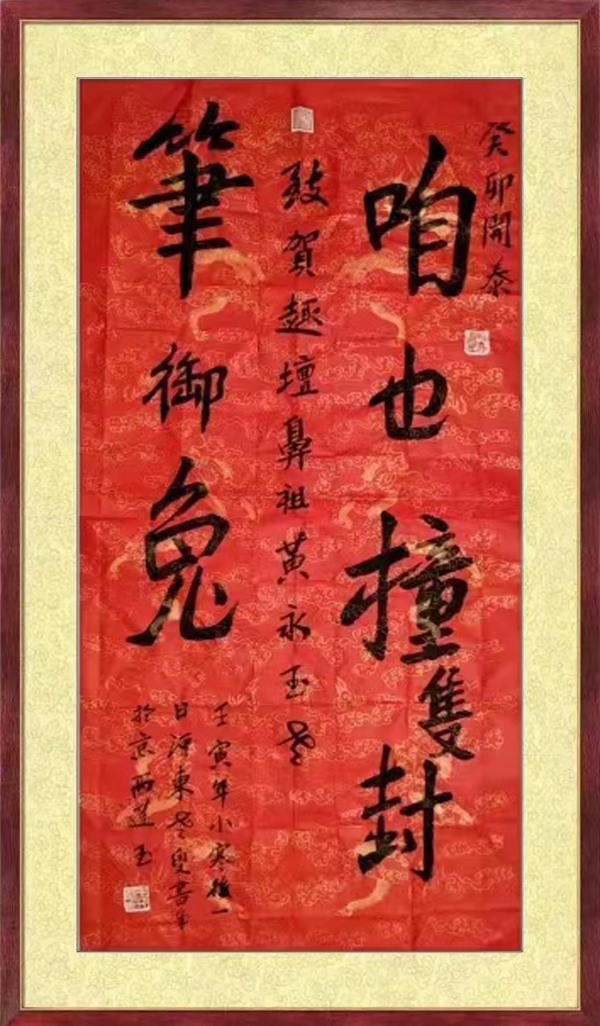 癸卯開泰
咱也撞隻封
致賀趣壇鼻祖黄永玉老
筆御兔
壬寅年小寒後一
日東老叟書
於京西玉